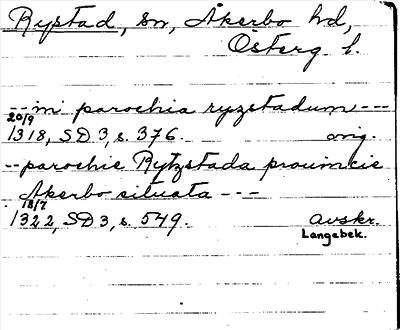 Rystad, sn, Åkerbo hd,
Österg l.
-- in parochia ryzstadum ---
20/9
1318, SD 3, s. 376. orig.
-- parochie Rytzstada prouincie
Akerbo situata ---
18/7
1322, SD 3, s. 549. avskr.
Langebek.